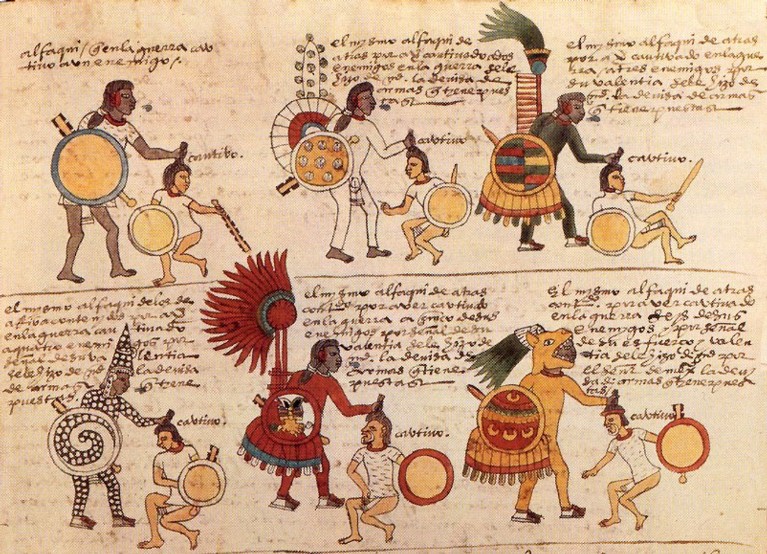 alfaqui / q̃ en la guerra cau
tivo a un enemigo /.
cautivo.
el mismo alfaqui de
atras por a ỹ cautivado dos
enemigos en la guerra se le
hizo de md. la devisa de
armas q̃ tiene pues
tas /
cautivo.
el mismo alfaqui de atras
por a ỹ cautivado en la gue
rra, a tres enemigos por
su valentia se le hizo de
md. la devisa de armas
q̃ tiene puestas /
cautivo.
el mismo alfaqui de los de
por
en la guerra cautivado
a quatro enemigos por
señal de su valentia
se le hizo de md. la devisa
de armas q̃ tiene
puestas /
cautivo.
el mismo alfaqui de atras
por aver cautivado
en la guerra a cinco de sus
enemigos por señal de su
valentia se le hizo de
md. la devisa de
armas q̃ tiene
puestas /
cautivo.
El mismo alfaqui de atras
por aver cautivado
en la guerra seys de sus
enemigos y por señal
de su esfuerço y valen
tia se le hizo de md. por
el señor de mexco la devi
sa de armas q̃ tiene pues
tas /
cautivo.